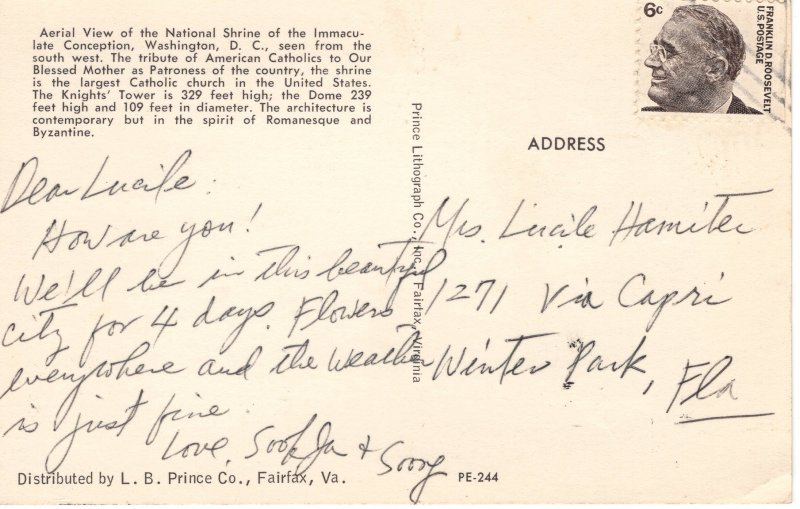 Aerial View of the National Shrine of the Immacu-
late Conception, Washington, D. C., seen from the
south west. The tribute of American Catholics to Our
Blessed Mother as Patroness of the country, the shrine
is the largest Catholic church in the United States.
The Knights' Tower is 329 feet high; the Dome 239
feet high and 109 feet in diameter. The architecture is
contemporary but in the spirit of Romanesque and
Byzantine.
Dear Lucile.
How are you!
We'll be in this beautiful
city for 4 days. Flowers
everywhere and the weather
is just fine.
Love, Sook Ja + Soong
Distributed by L. B. Prince Co., Fairfax, Va.
PE-244
Prince Lithograph Co., Inc., Fairfax, Virginia
6c
FRANKLIN D. ROOSEVELT
U.S. POSTAGE
ADDRESS
Mrs. Lucile Hamiter
1271 Via Capri
Winter Park, Fla